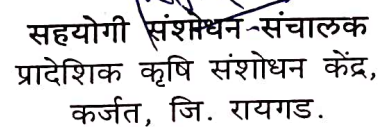 सहयोगी संशोधन-संचालक
प्रादेशिक कृषि संशोधन केंद्र,
कर्जत, जि. रायगड.